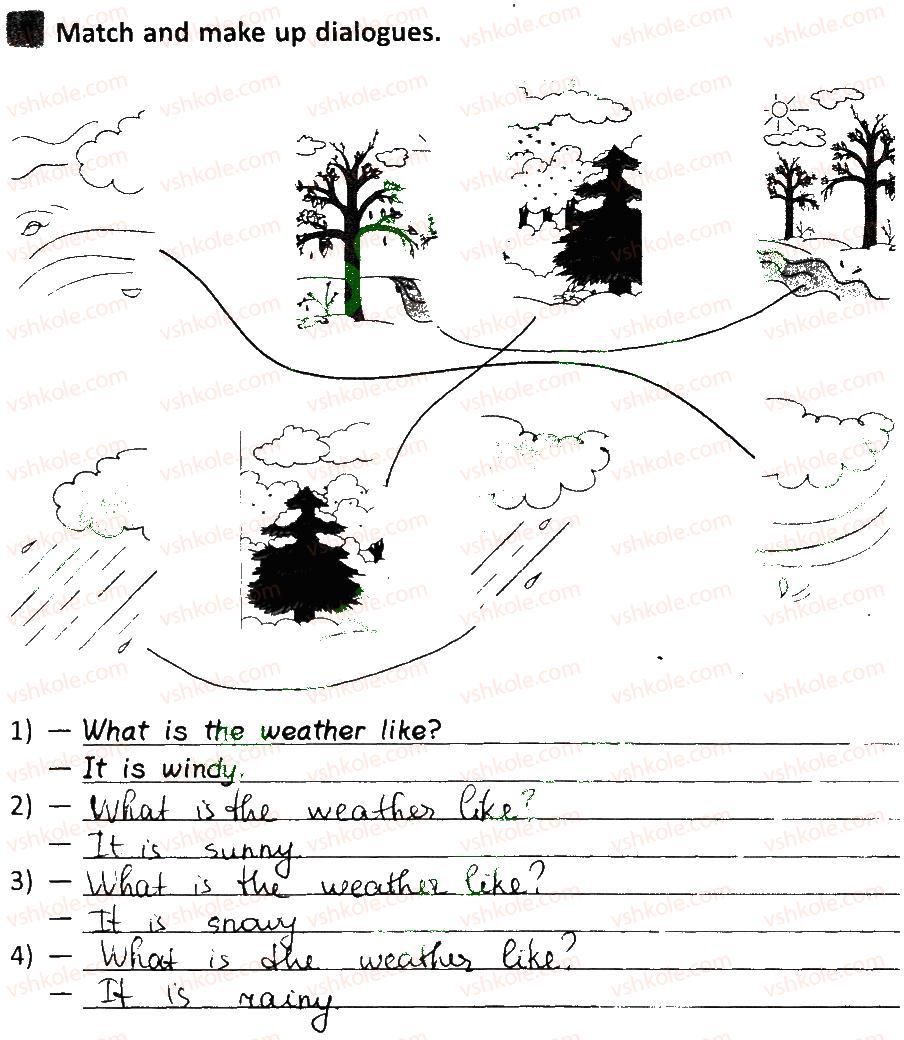 Match and make up dialogues.
1) — What is the weather like?
— It is windy.
2) — What is the weather like?
— It is sunny.
3) — What is the weather like?
— It is snowy
4) — What is the weather like?
— It is rainy.
vshkole.com